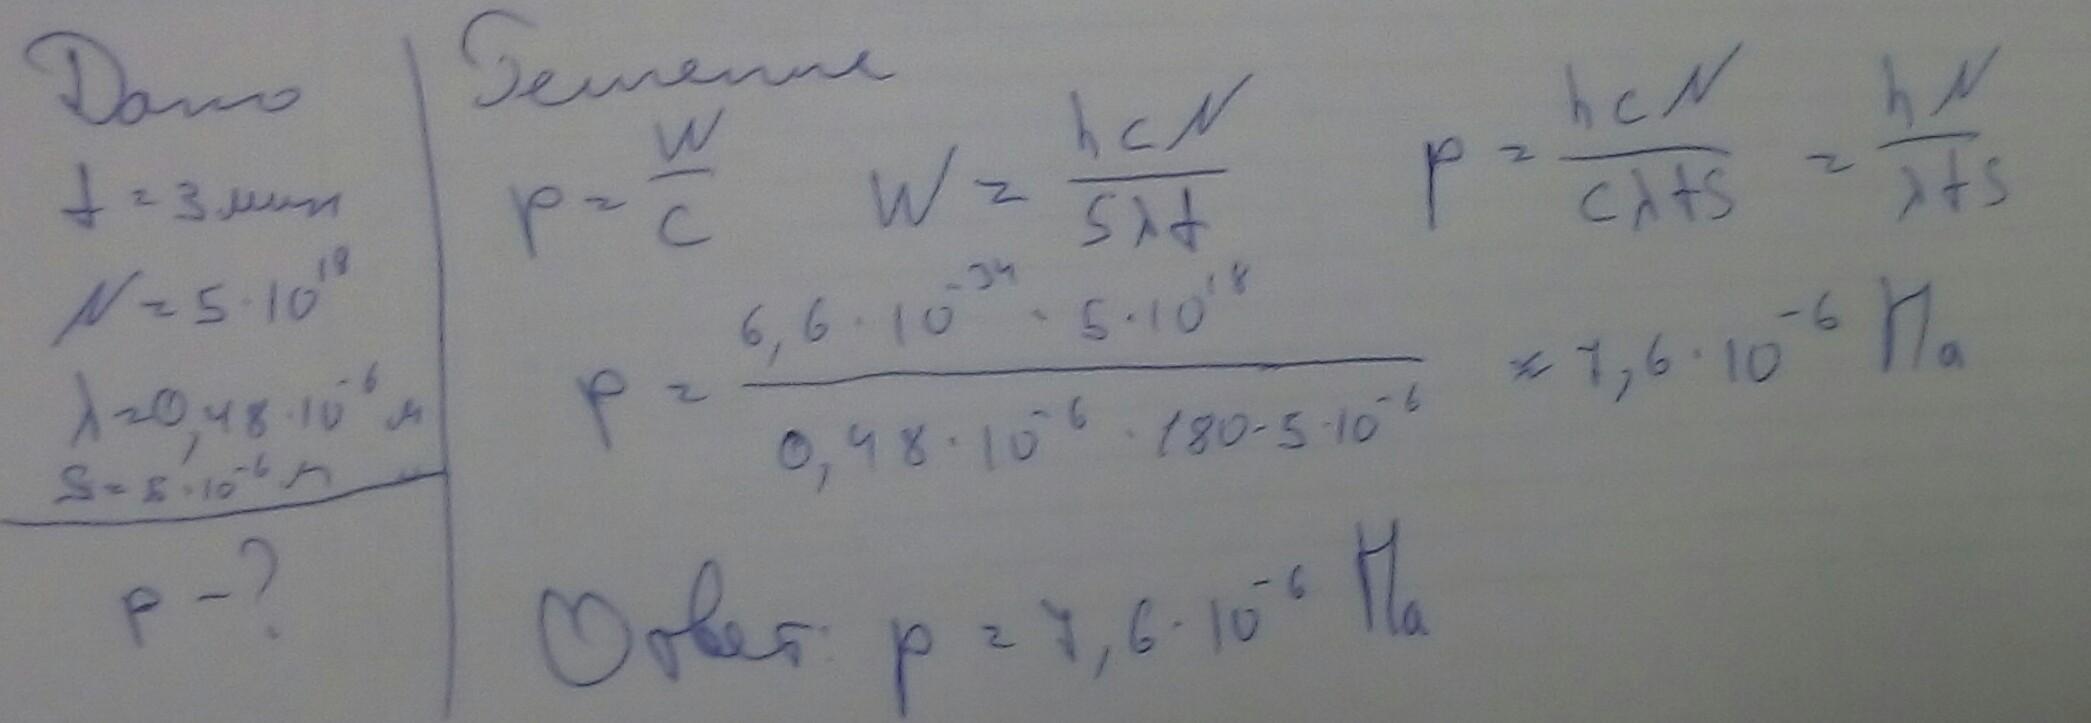 Дано
t = 3 мин
N = 5·10¹⁸
λ = 0,48·10⁻⁶ м
S = 5·10⁻⁶ м
p - ?
Решение
p = W/c   W = hcN/Sλt   p = hcN/cλtS = hN/λtS
p = 6,6·10⁻³⁴·5·10¹⁸/0,48·10⁻⁶·180·5·10⁻⁶ ≈ 7,6·10⁻⁶ Па
Ответ: p = 7,6·10⁻⁶ Па